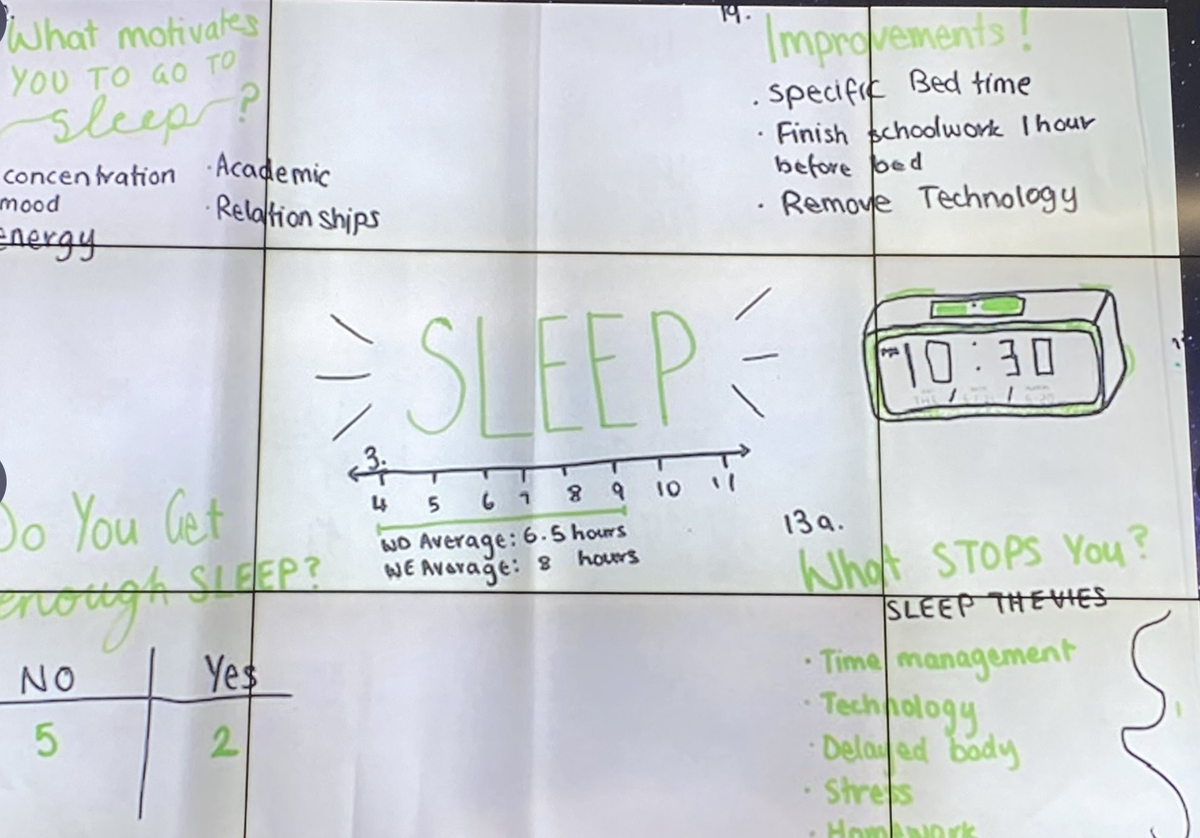 What motivates
YOU TO GO TO
sleep?
concentration
mood
energy
· Academic
· Relationships
19.
Improvements!
. specific Bed time
· Finish schoolwork 1 hour
before bed
· Remove Technology
SLEEP
10:30
3.
4 5 6 7 8 9 10 11
WD Average: 6.5 hours
WE Average: 8 hours
Do You Get
enough SLEEP?
NO Yes
5 2
13a.
What STOPS You?
SLEEP THEVIES
· Time management
· Technology
· Delayed body
· Stress
· Homework